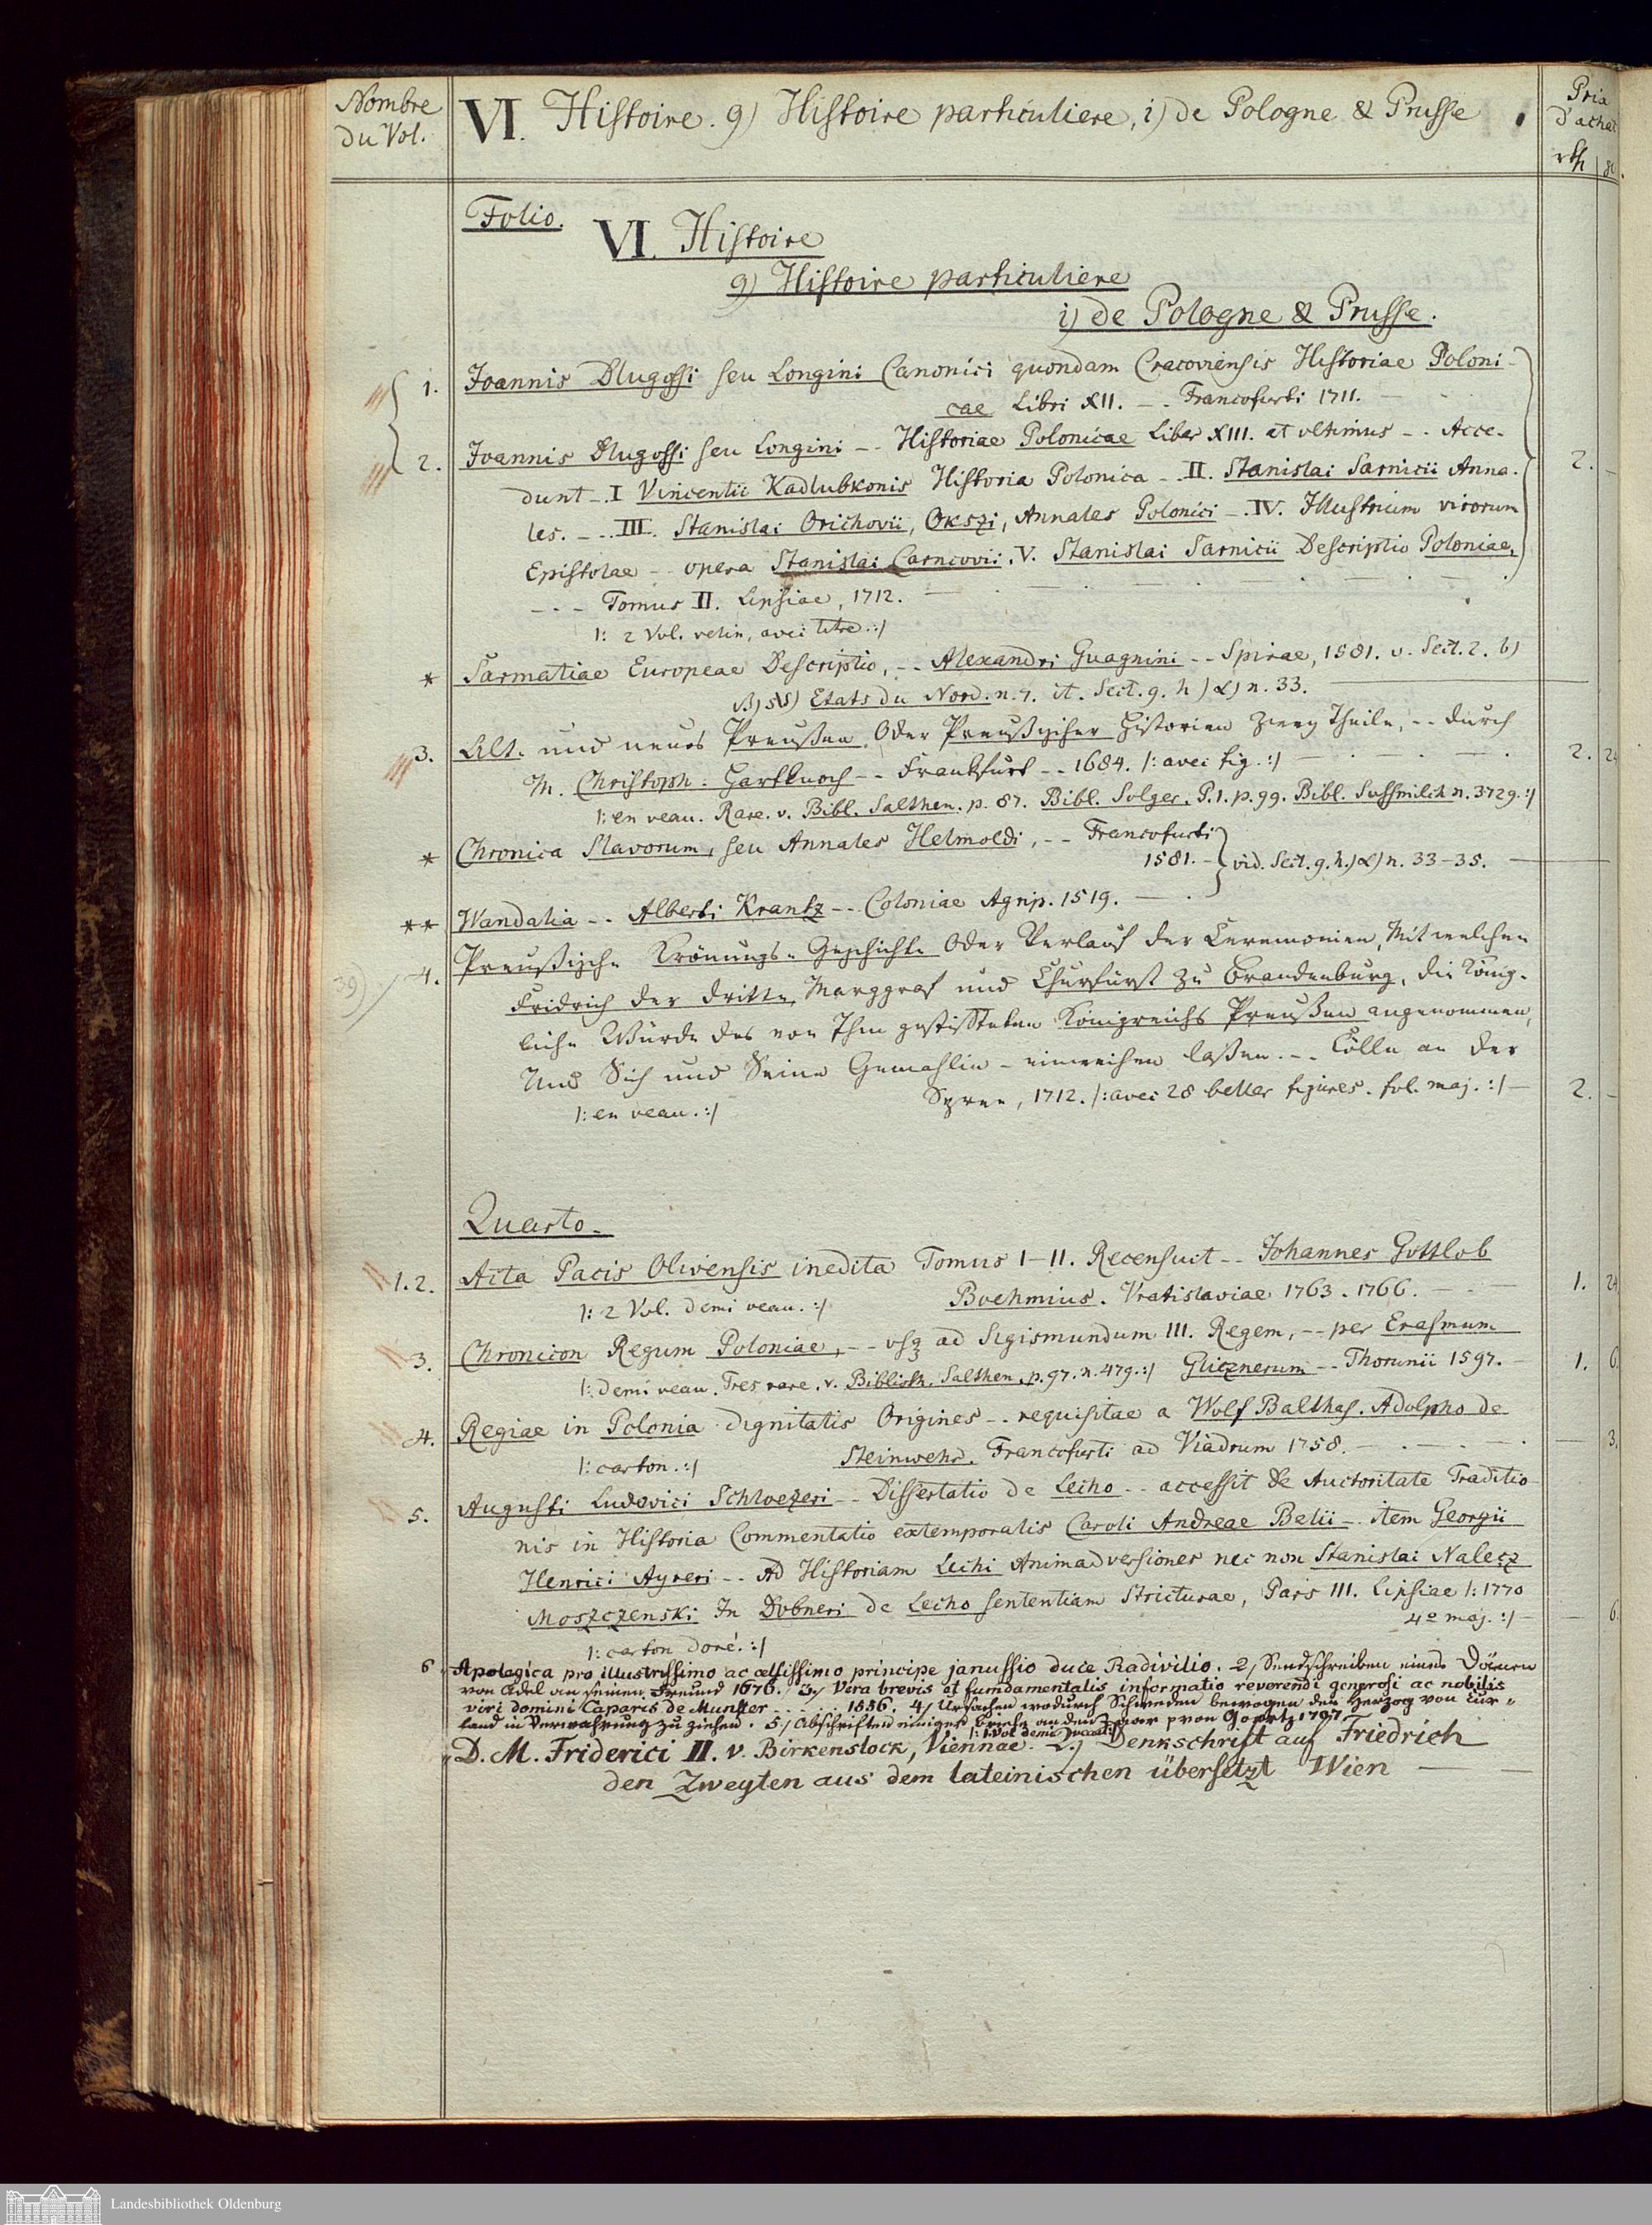 Nombre
du Vol.
VI. Histoire. g) Histoire particuliere, i) de Pologne & Prusse
Prix
d'achat
rth
Folio.
VI. Histoire
g) Histoire particuliere
i) de Pologne & Prusse.
1. Joannis Dlugossi seu Longini Canonici quondam Cracoviensis Historiae Poloni-
cae Libri XII. -. Francofurti 1711.
2. Joannis Dlugossi seu Longini -- Historiae Polonicae Liber XIII. et vltimus -. Acce-
dunt -. I Vincentii Kadlubkonis Historia Polonica -. II. Stanislai Sarnicii Anna- 2.
les. -.. III. Stanislai Orichovii, Okszi, Annales Polonici -. IV. Illustrium virorum
Epistolae -- opera Stanislai Carncovii. V. Stanislai Sarnicii Descriptio Poloniae,
--- Tomus II. Lipsiae, 1712.
/: 2 Vol. velin, avec titre. :/
* Sarmatiae Europeae Descriptio, -- Alexandri Guagnini -- Spirae, 1581. v. Sect. 2. b)
Etats du Nord. n. 7. it. Sect. g. h) α) n. 33.
3. Alt- und neues Preußen Oder Preußischer Historien Zwey Theile, -- durch
M. Christoph. Hartknoch -- Frankfurt -- 1684. /: avec fig. :/ 2. 24
/: en veau. Rare. v. Bibl. Salthen. p. 87. Bibl. Solger. P. 1. p. 99. Bibl. Sussmilch n. 3729. :/
* Chronica Slavorum, seu Annales Helmoldi, -- Francofurti
1581. - vid. Sect. g. h.) α) n. 33-35.
** Wandalia -- Alberti Krantz -- Coloniae Agrip. 1519.
39)
4. Preußische Krönungs-Geschichte Oder Verlauf der Ceremonien, Mit welchen
Fridrich der dritte, Marggraf und Churfürst zu Brandenburg, die König-
liche Würde des von Ihm gestiffteten Königreichs Preußen angenommen,
Und Sich und Seine Gemahlin - einweihen laßen. -- Cölln an der
Spree, 1712. /: avec 28 belles figures. fol. maj. :/ 2.
/: en veau. :/
Quarto.
1. 2. Acta Pacis Olivensis inedita Tomus I-II. Recensuit -- Johannes Gottlob
Boehmius. Vratislaviae 1763. 1766. 1. 24
/: 2 Vol. demi veau. :/
3. Chronicon Regum Poloniae, -- vsq ad Sigismundum III. Regem, -- per Erasmum
Glicznerum -- Thorunii 1597. 1. 6.
/: demi veau. Tres rare. v. Biblioth. Salthen. p. 97. n. 479. :/
4. Regiae in Polonia dignitatis Origines -- requisitae a Wolf Balthas. Adolpho de
Steinwehr. Francofurti ad Viadrum 1758. 3.
/: carton. :/
5. Augusti Ludovici Schloezeri -- Dissertatio de Lecho -- accessit de Auctoritate Traditio-
nis in Historia Commentatio extemporalis Caroli Andreae Belii -- item Georgii
Henrici Ayreri -- Ad Historiam Lechi Animadversiones nec non Stanislai Nalecz
Moszczenski In Dobneri de Lecho sententiam Stricturae, Pars III. Lipsiae /: 1770
4º maj. :/ 6.
/: carton doré. :/
6. Apologica pro illustrissimo ac celsissimo principe janussio duce Radivilio. 2, Sendschreiben eines Dänen
von Adel an seinen Freund 1676. 3, Vera brevis et fumdamentalis informatio reverendi generosi ac nobilis
viri domini Caparis de Munster ..... 1556. 4, Ursachen wodurch Schweden bewogen den Herzog von Cur-
land in Verwahrung zu ziehen. 5, Abschriften einiger briefe an den von Goertz
D. M. Friderici II. v. Birkenstock, Viennae. 2.) Denkschrift auf Friedrich
den Zweyten aus dem lateinischen übersetzt Wien
Landesbibliothek Oldenburg